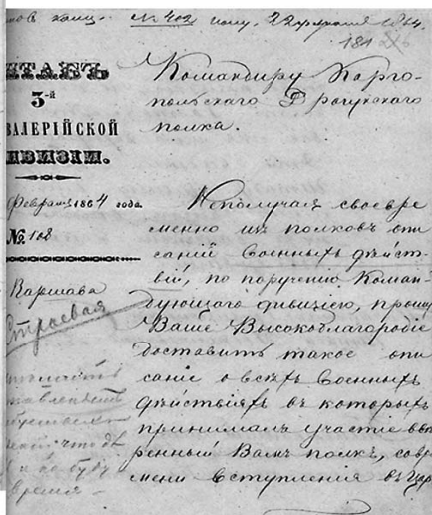 № 402 полу. 22 февраля 1864.
181
ШТАБЪ
3-й
ВАЛЕРІЙСКОЙ
ИВИЗІИ.
Февраля 1864 года.
№ 108
Варшава
Строевая
Командиру Карго
польскаго Драгунскаго
полка.
Неполучая своевре
менно изъ полковъ опи
саній военныхъ дѣйст
вій, по порученію Коман
дующаго дивизіею, прошу
Ваше Высокоблагородіе
доставить такое опи
саніе о всѣхъ военныхъ
дѣйствіяхъ въ которыхъ
принималъ участіе ввѣ
ренный Вамъ полкъ, совре
мени вступленія въ Цар